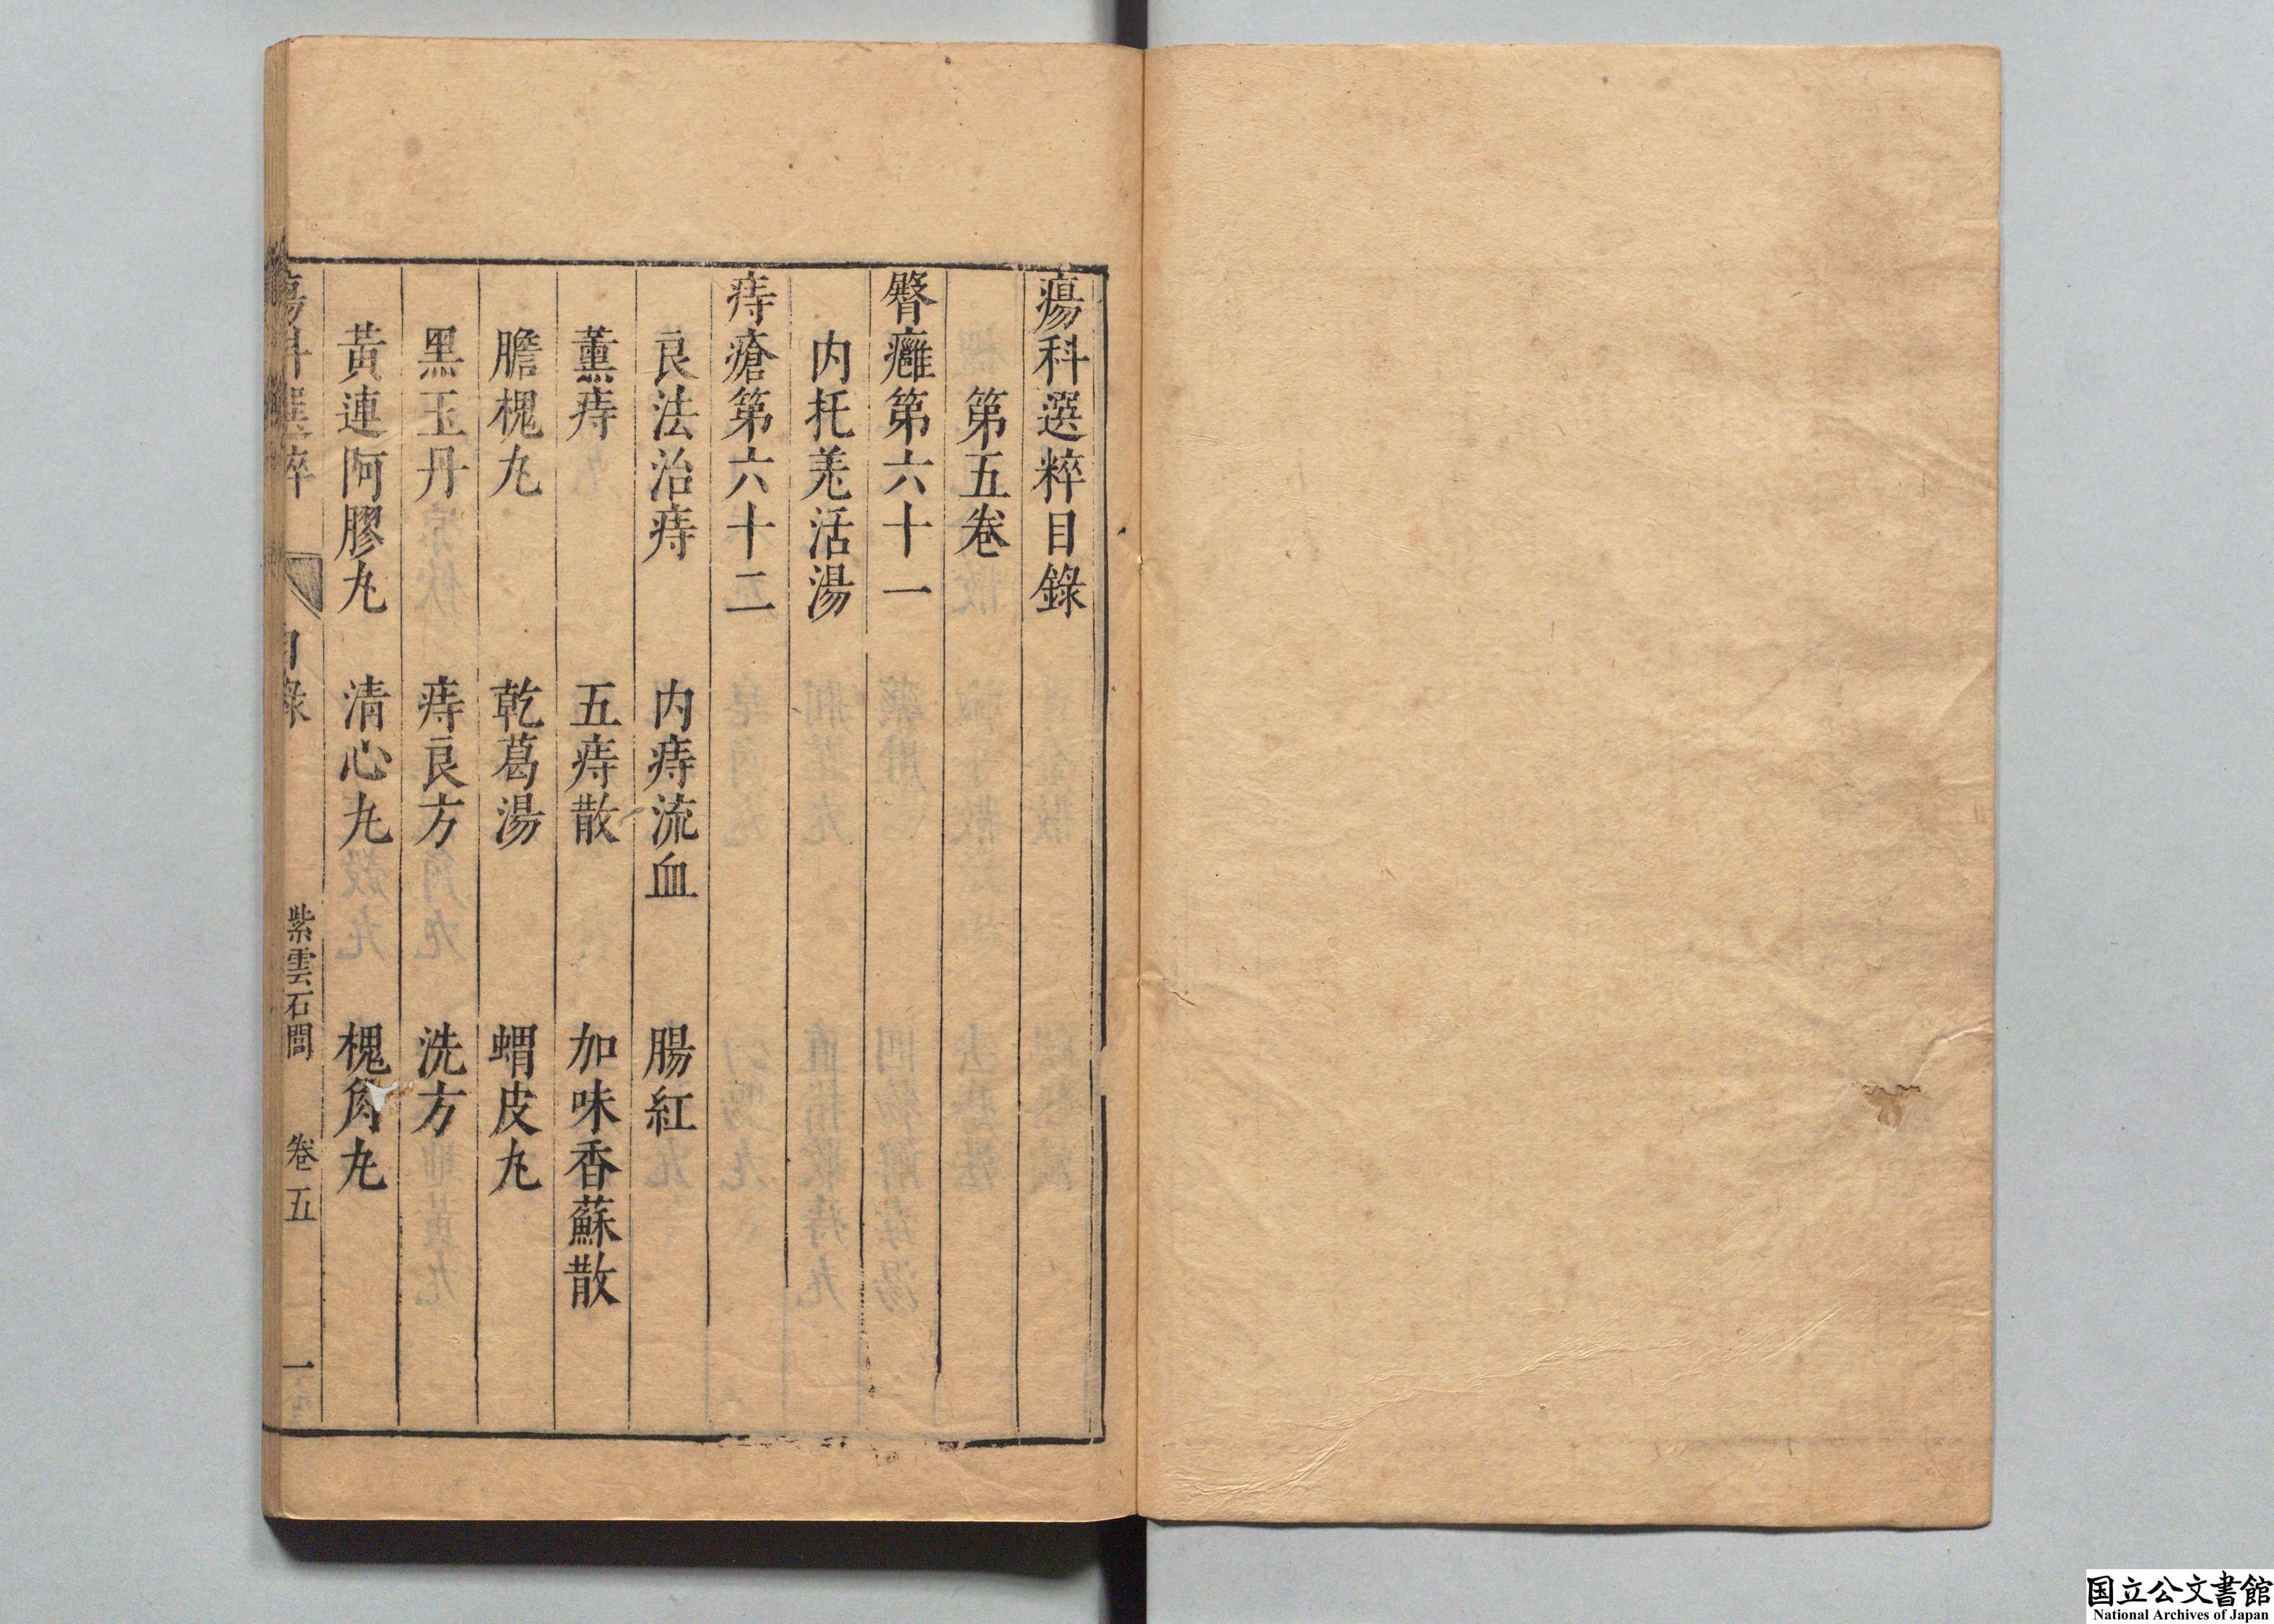 瘍科選粹目錄
第五卷
臀癰第六十一
内托羗活湯
痔瘡第六十二
良法治痔　内痔流血　腸紅
薰痔　五痔散　加味香蘇散
膽槐丸　乾葛湯　蝟皮丸
黑玉丹　痔良方　洗方
黃連阿膠丸　清心丸　槐角丸
瘍科選粹　目錄　紫雲石閭　卷五　一
国立公文書館
National Archives of Japan